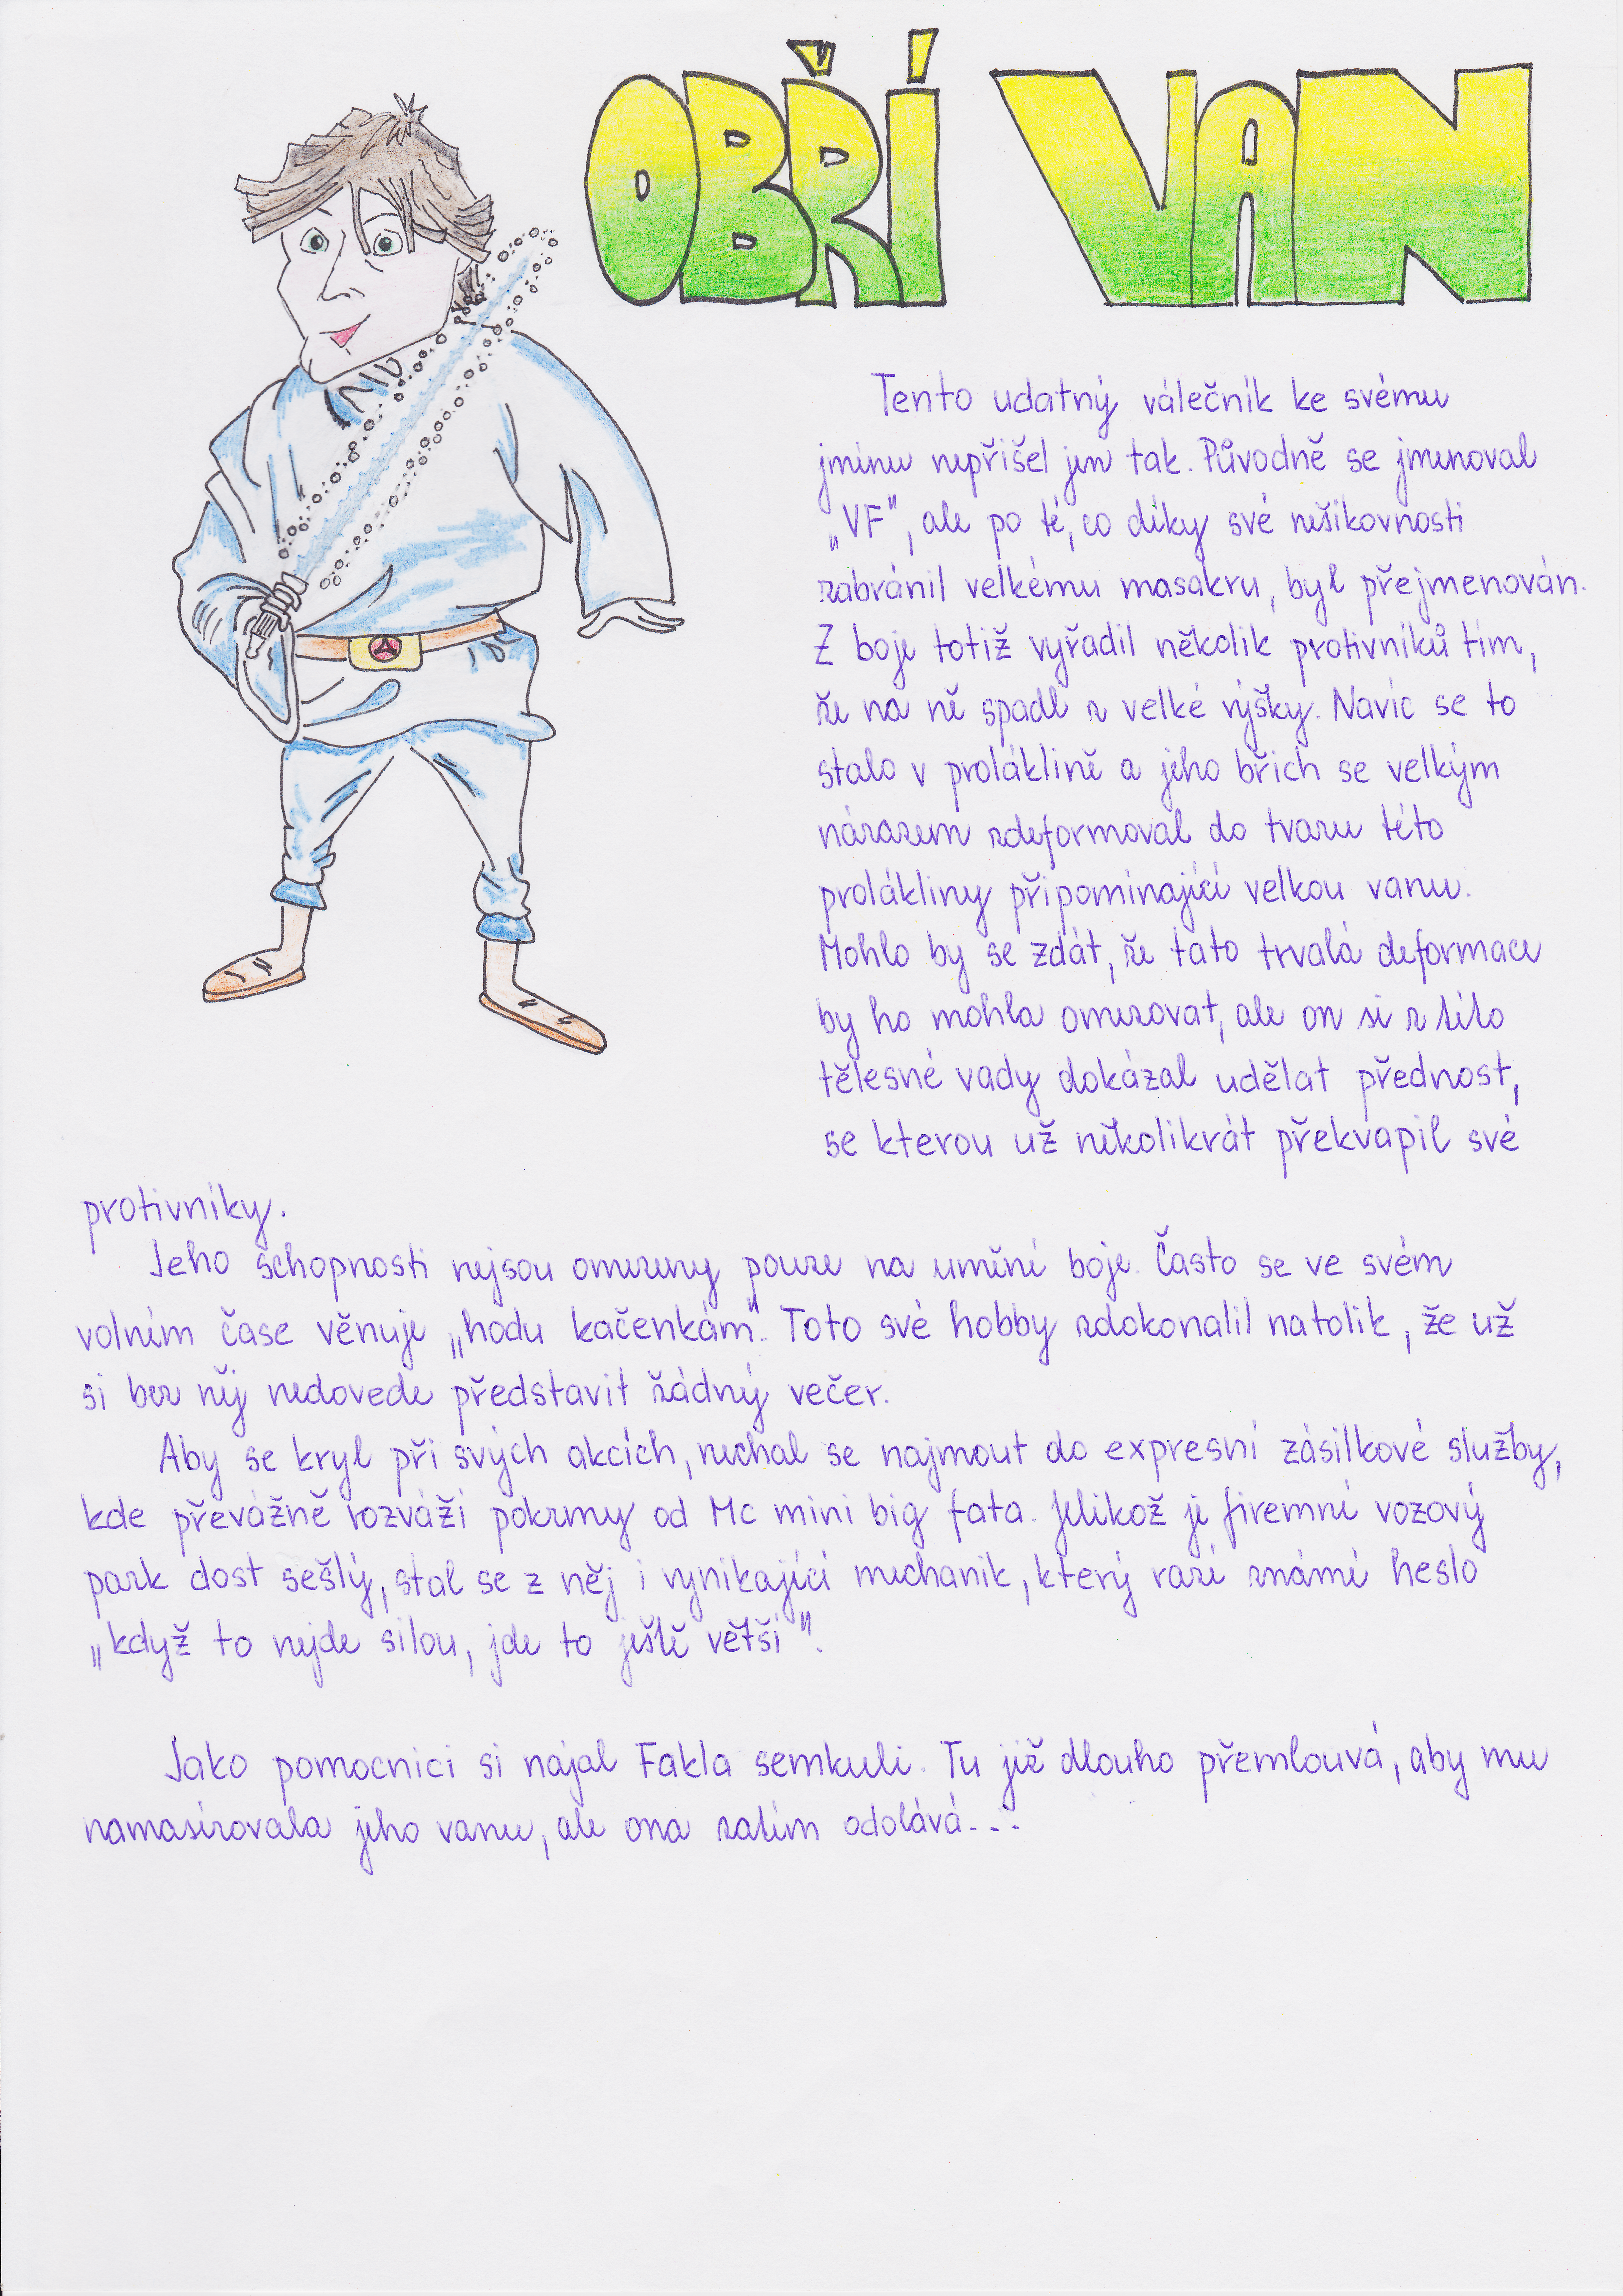 OBŘÍ VAN
Tento udatný válečník ke svému
jménu nepřišel jen tak. Původně se jmenoval
„VF“, ale po té, co díky své nešikovnosti
zabránil velkému masakru, byl přejmenován.
Z boje totiž vyřadil několik protivníků tím,
že na ně spadl z velké výšky. Navíc se to
stalo v proláklině a jeho břich se velkým
nárazem zdeformoval do tvaru této
prolákliny připomínající velkou vanu.
Mohlo by se zdát, že tato trvalá deformace
by ho mohla omezovat, ale on si z této
tělesné vady dokázal udělat přednost,
se kterou už několikrát překvapil své
protivníky.
Jeho schopnosti nejsou omezeny pouze na umění boje. Často se ve svém
volném čase věnuje „hodu kačenkám“. Toto své hobby zdokonalil natolik, že už
si bez něj nedovede představit žádný večer.
Aby se kryl při svých akcích, nechal se najmout do expresní zásilkové služby,
kde převážně rozváží pokrmy od Mc mini big fata. Jelikož je firemní vozový
park dost sešlý, stal se z něj i vynikající mechanik, který razí známé heslo
„když to nejde silou, jde to ještě větší“.
Jako pomocnici si najal Fakla semkuli. Tu již dlouho přemlouvá, aby mu
namasírovala jeho vanu, ale ona zatím odolává...